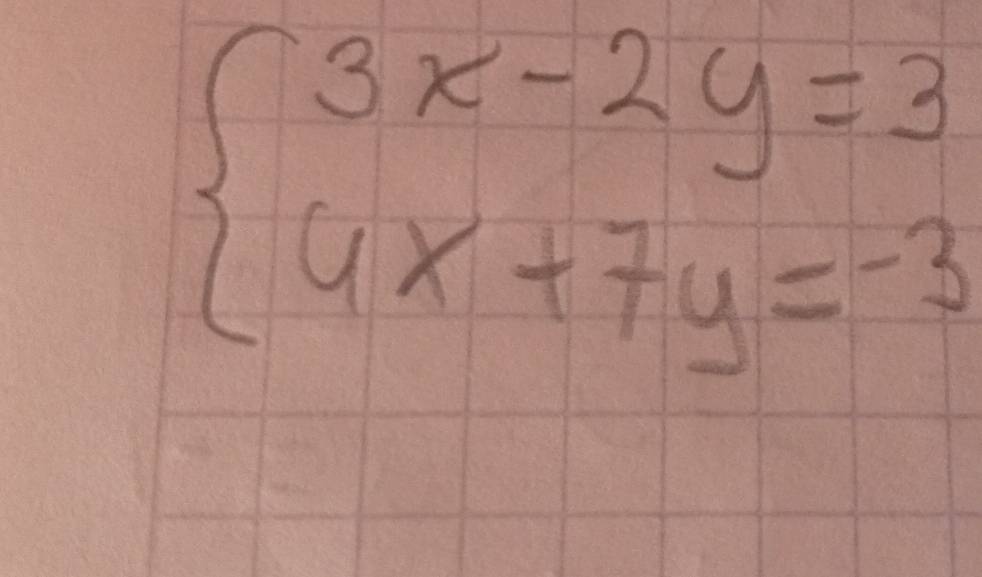 3x-2y=3
4x+7y=-3